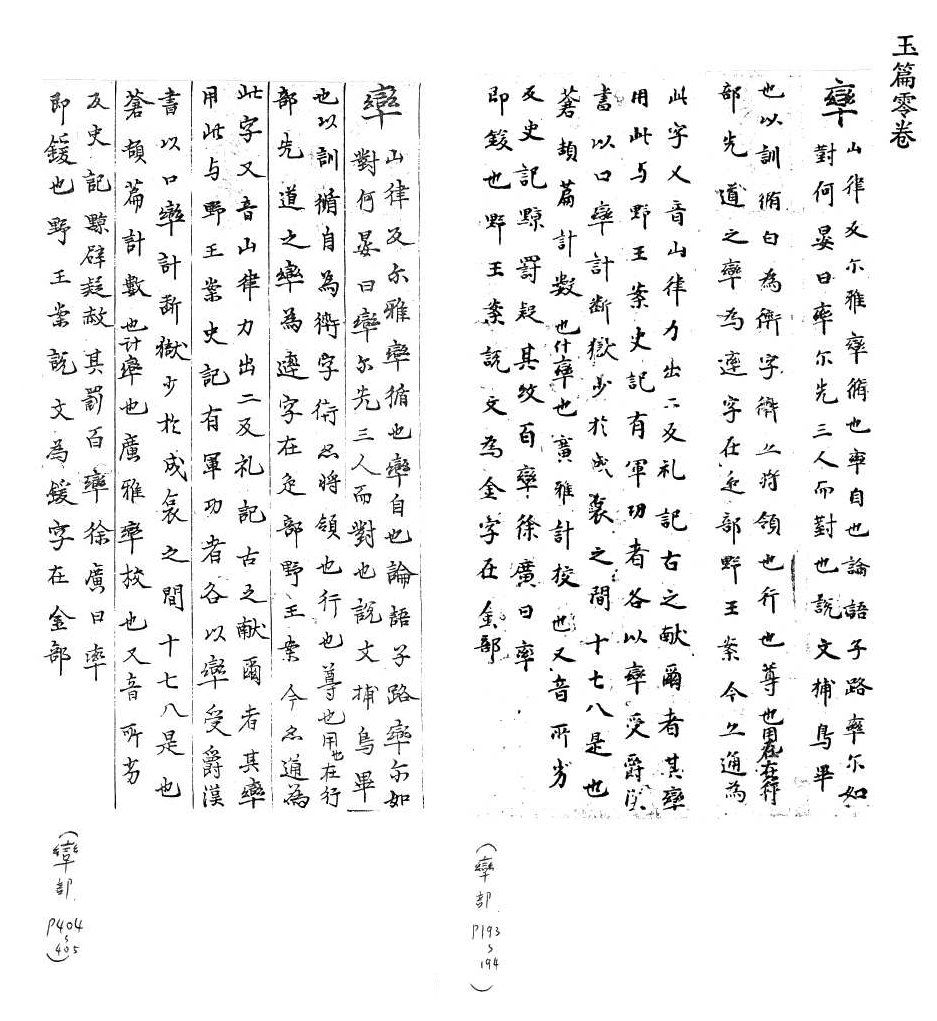 玉篇零卷
率 山律反尓雅率循也率自也論語子路率尓如
對何晏曰率尓先三人而對也說文捕鳥畢
也以訓循自為衛字衛亦將領也行也尊也用在行
部先道之率為達字在辵部野王案今亦通為
此字又音山律力出二反礼記古之献爾者其率
用此与野王案史記有軍功者各以率受爵漢
書以口率計断獄少於成哀之間十七八是也
蒼頡篇計数也什率也廣雅計校也又音所劣
反史記黥罰疑其紋百率徐廣曰率
即鋑也野王案說文為金字在金部
(率部 P193~194)
率 山律反尓雅率循也率自也論語子路率尓如
對何晏曰率尓先三人而對也說文捕鳥畢
也以訓循自為衛字衛亦將領也行也尊也用也在行
部先道之率為達字在辵部野王案今亦通為
此字又音山律力出二反礼記古之献爾者其率
用此与野王案史記有軍功者各以率受爵漢
書以口率計断獄少於成哀之間十七八是也
蒼頡篇計數也計率也廣雅率校也又音所劣
反史記黥辟疑赦其罰百率徐廣曰率
即鍰也野王案說文為鍰字在金部
(率部 P404~405)